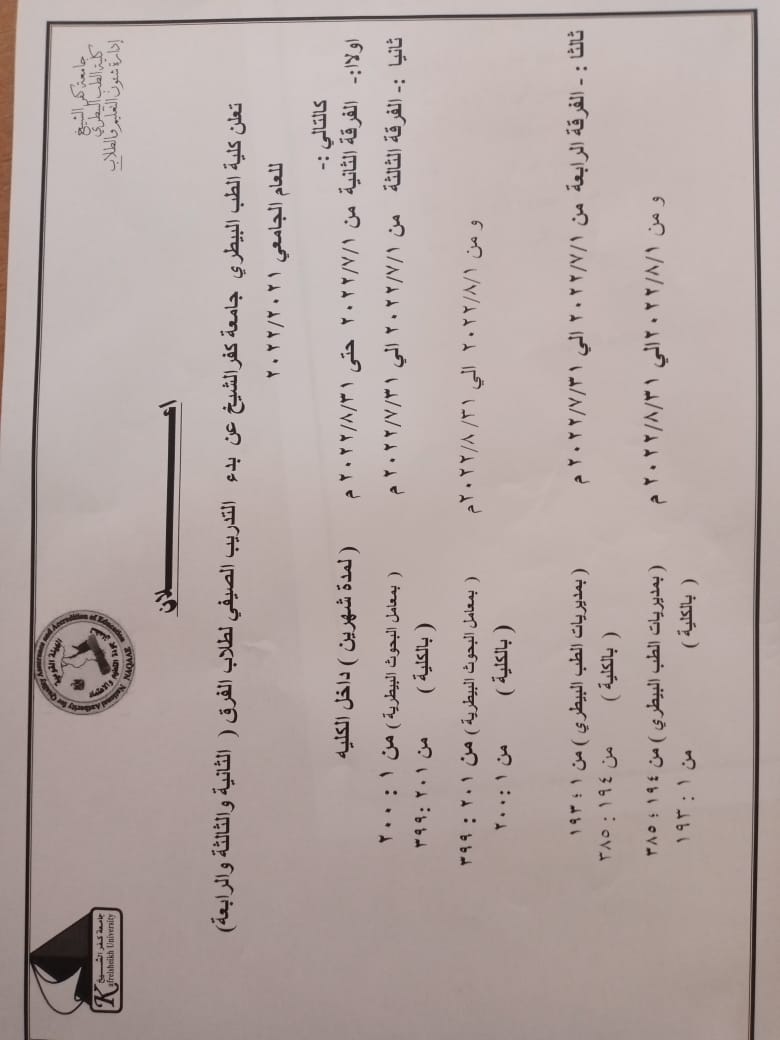 جامعة كفر الشيخ
كلية الطب البيطري
إدارة شئون التعليم والطلاب
الهيئة القومية
National Authority for Quality Assurance and Accreditation of Education
جامعة كفر الشيخ
Kafrelsheikh University
اعـــــــــلان
تعلن كلية الطب البيطري جامعة كفر الشيخ عن بدء التدريب الصيفي لطلاب الفرق ( الثانية والثالثة والرابعة)
للعام الجامعي ٢٠٢٢/٢٠٢١
كالتالي :-
اولاا:- الفرقة الثانية من ٢٠٢٢/٧/١ حتى ٢٠٢٢/٨/٣١ م ( لمدة شهرين ) داخل الكليه
ثانيا :- الفرقة الثالثة من ٢٠٢٢/٧/١ الي ٢٠٢٢/٧/٣١ م ( بمعامل البحوث البيطرية ) من ١ : ٢٠٠
( بالكلية ) من ٢٠١ : ٣٩٩
و من ٢٠٢٢/٨/١ الي ٢٠٢٢/٨/٣١م ( بمعامل البحوث البيطرية ) من ٢٠١ : ٣٩٩
( بالكلية ) من ١ : ٢٠٠
ثالثا : - الفرقة الرابعة من ٢٠٢٢/٧/١ الي ٢٠٢٢/٧/٣١ م ( بمديريات الطب البيطري ) من ١ : ١٩٣
( بالكلية ) من ١٩٤ : ٣٨٥
و من ٢٠٢٢/٨/١ الي ٢٠٢٢/٨/٣١ م ( بمديريات الطب البيطري ) من ١٩٤ : ٣٨٥
( بالكلية ) من ١ : ١٩٣